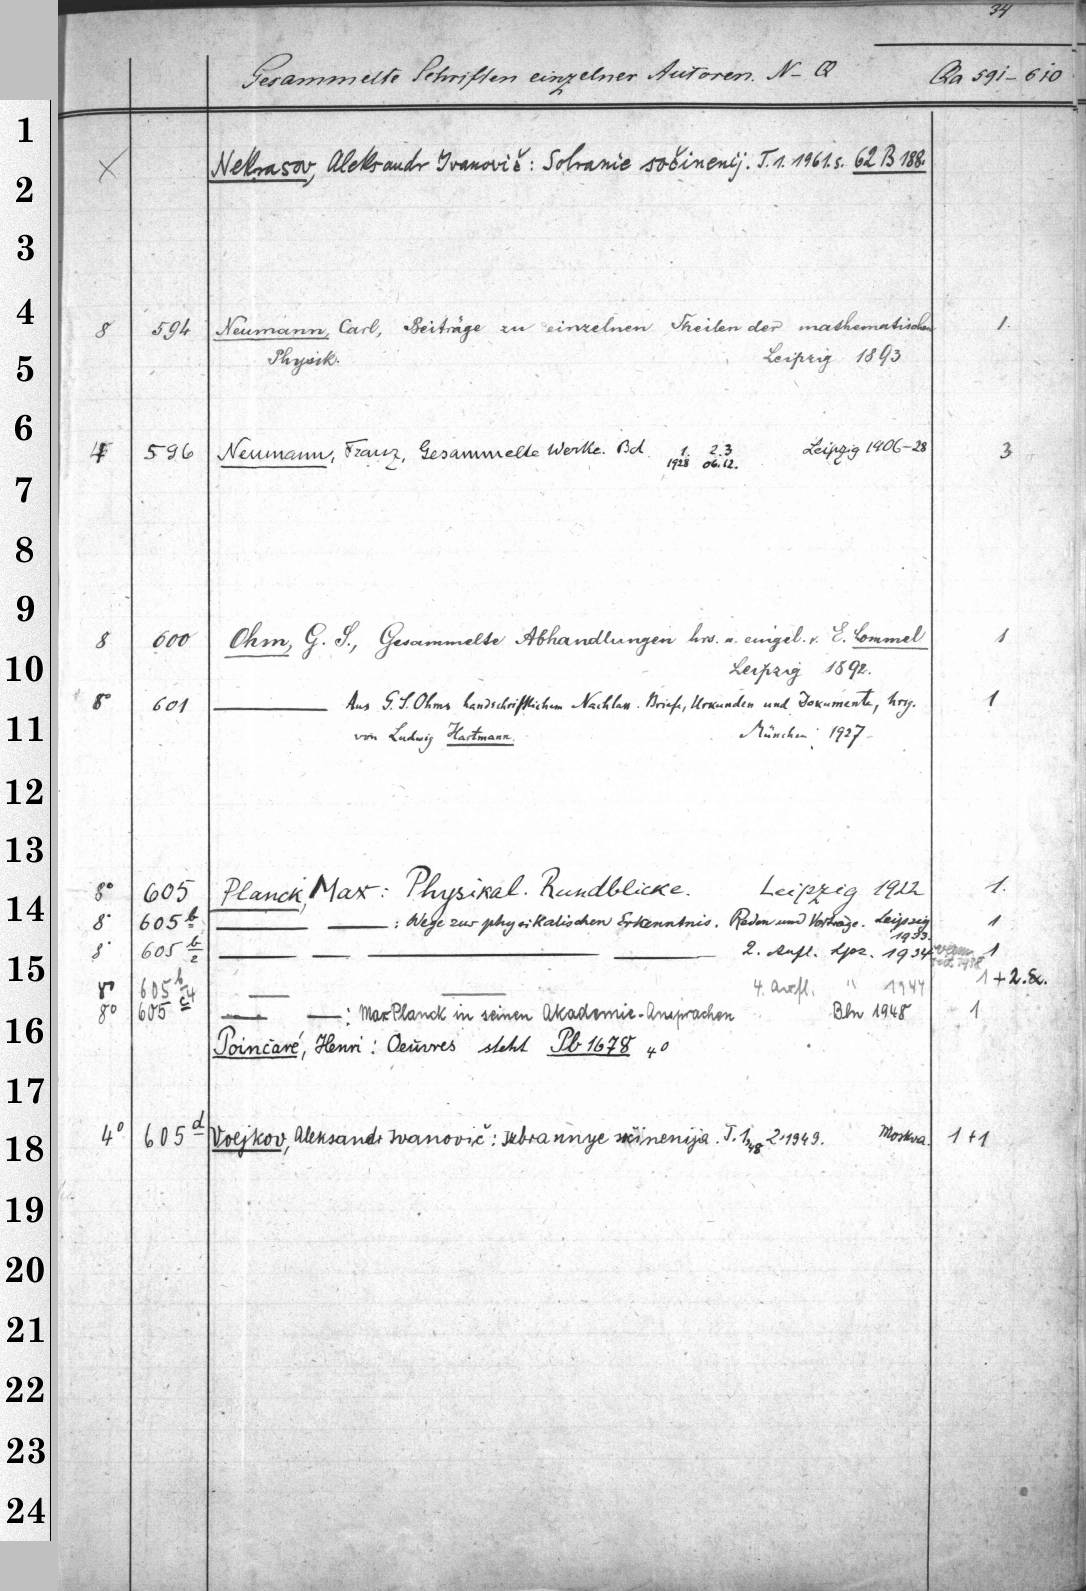 34
Gesammelte Schriften einzelner Autoren. N-Q Qa 591-610
1
× Nekrasov, Aleksandr Ivanovič: Sobranie sočinenij. T. 1. 1961. s. 62 B 188.
2
3
4
8 594 Neumann, Carl, Beiträge zu einzelnen Theilen der mathematischen 1.
Physik. Leipzig 1893
5
6
4 596 Neumann, Franz, Gesammelte Werke. Bd. 1. 2. 3 Leipzig 1906-28 3
1928 06. 12.
7
8
9
8 600 Ohm, G. S., Gesammelte Abhandlungen hrs. u. eingel. v. E. Lommel 1
10
Leipzig 1892.
8° 601 Aus G. S. Ohms handschriftlichem Nachlass. Briefe, Urkunden und Dokumente, hrg. 1
11
von Ludwig Hartmann. München 1927
12
13
8° 605 Planck, Max: Physikal. Rundblicke. Leipzig 1922 1.
14
8° 605 b : Wege zur physikalischen Erkenntnis. Reden und Vorträge. Leipzig 1
1933.
8° 605 b/2 2. Aufl. Lpz. 1934 1
15
8° 605 b/4 4. Aufl. " 1944 1 + 2. Ex.
8° 605 c : Max Planck in seinen Akademie-Ansprachen Bln 1948 1
16
Poincaré, Henri: Oeuvres steht Pb 1678 4°
17
4° 605 d Voejkov, Aleksandr Ivanovič: Izbrannye sočinenija. T. 1,48 2.1949. Moskva. 1 + 1
18
19
20
21
22
23
24